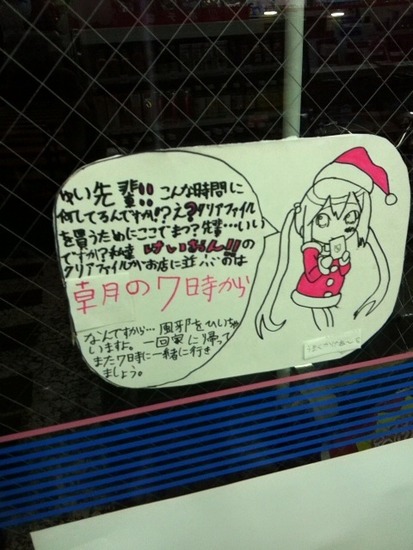 ゆい先輩!!こんな時間に
何してるんですか!?え?クリアファイル
を買うためにここでまつ?先輩…いい
ですか?私達けいおん!!の
クリアファイルがお店に並ぶのは
草月の7時から
なんですから…風邪をひいちゃ
いますよ。一回家に帰って
また7時に一緒に行き
ましょう。